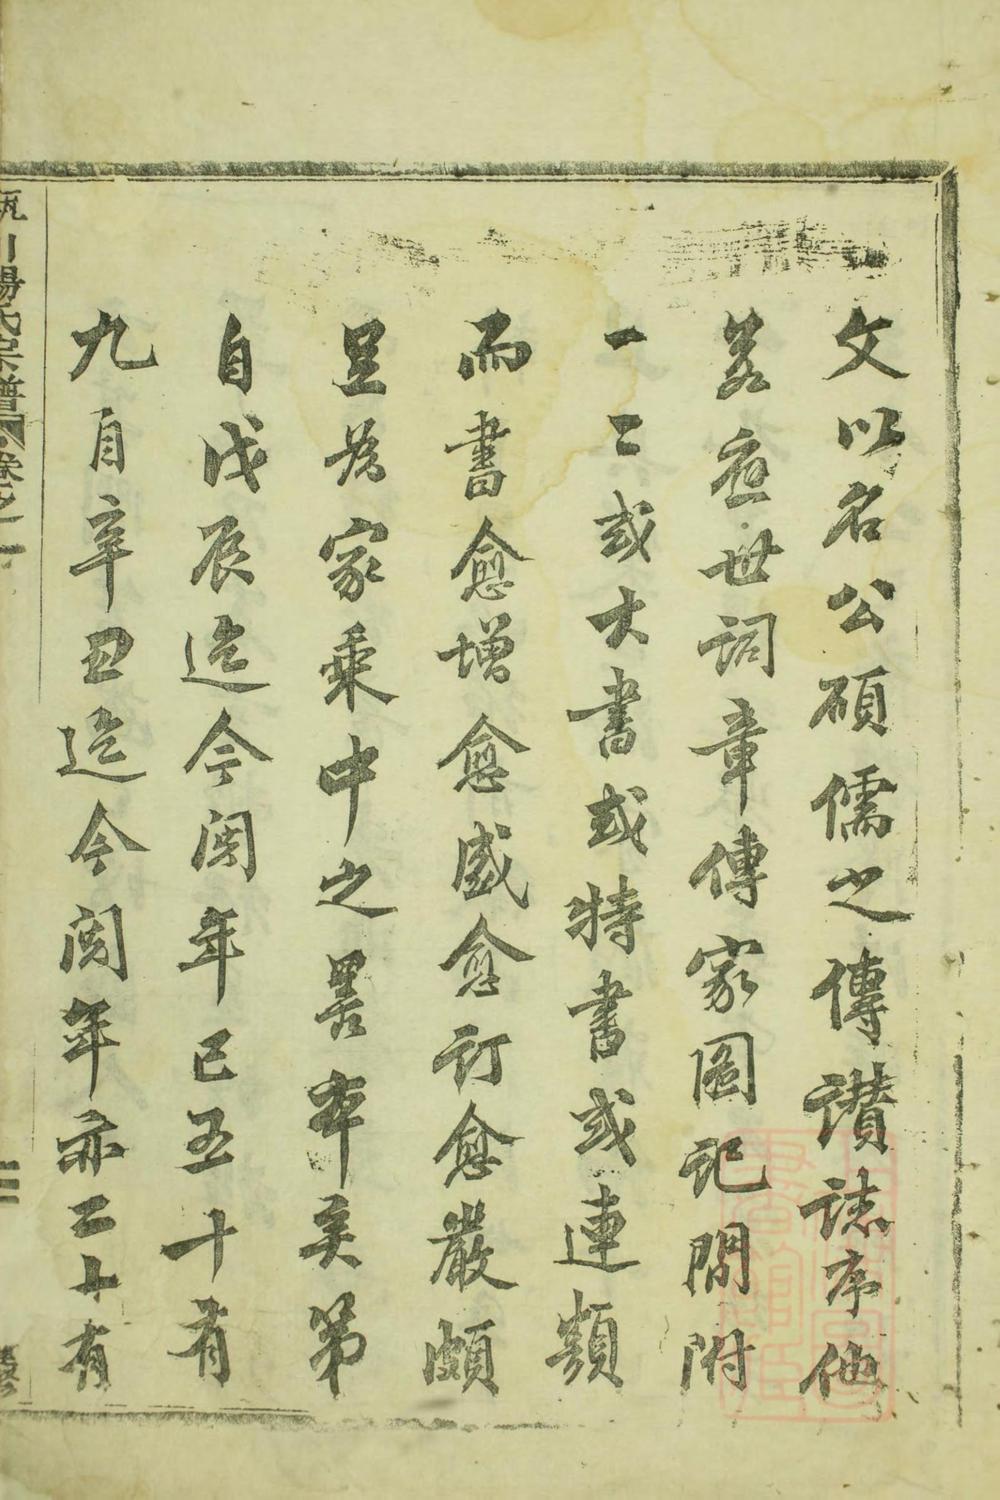 文以名公碩儒之傳讃誌序他
若應世詞章傳家圖記間附
一二或大書或特書或連類
而書愈增愈盛愈訂愈嚴頗
足為家乘中之善本矣第
自戊辰迄今閱年已五十有
九自辛丑迄今閱年亦二十有
川楊氏宗譜 卷之一